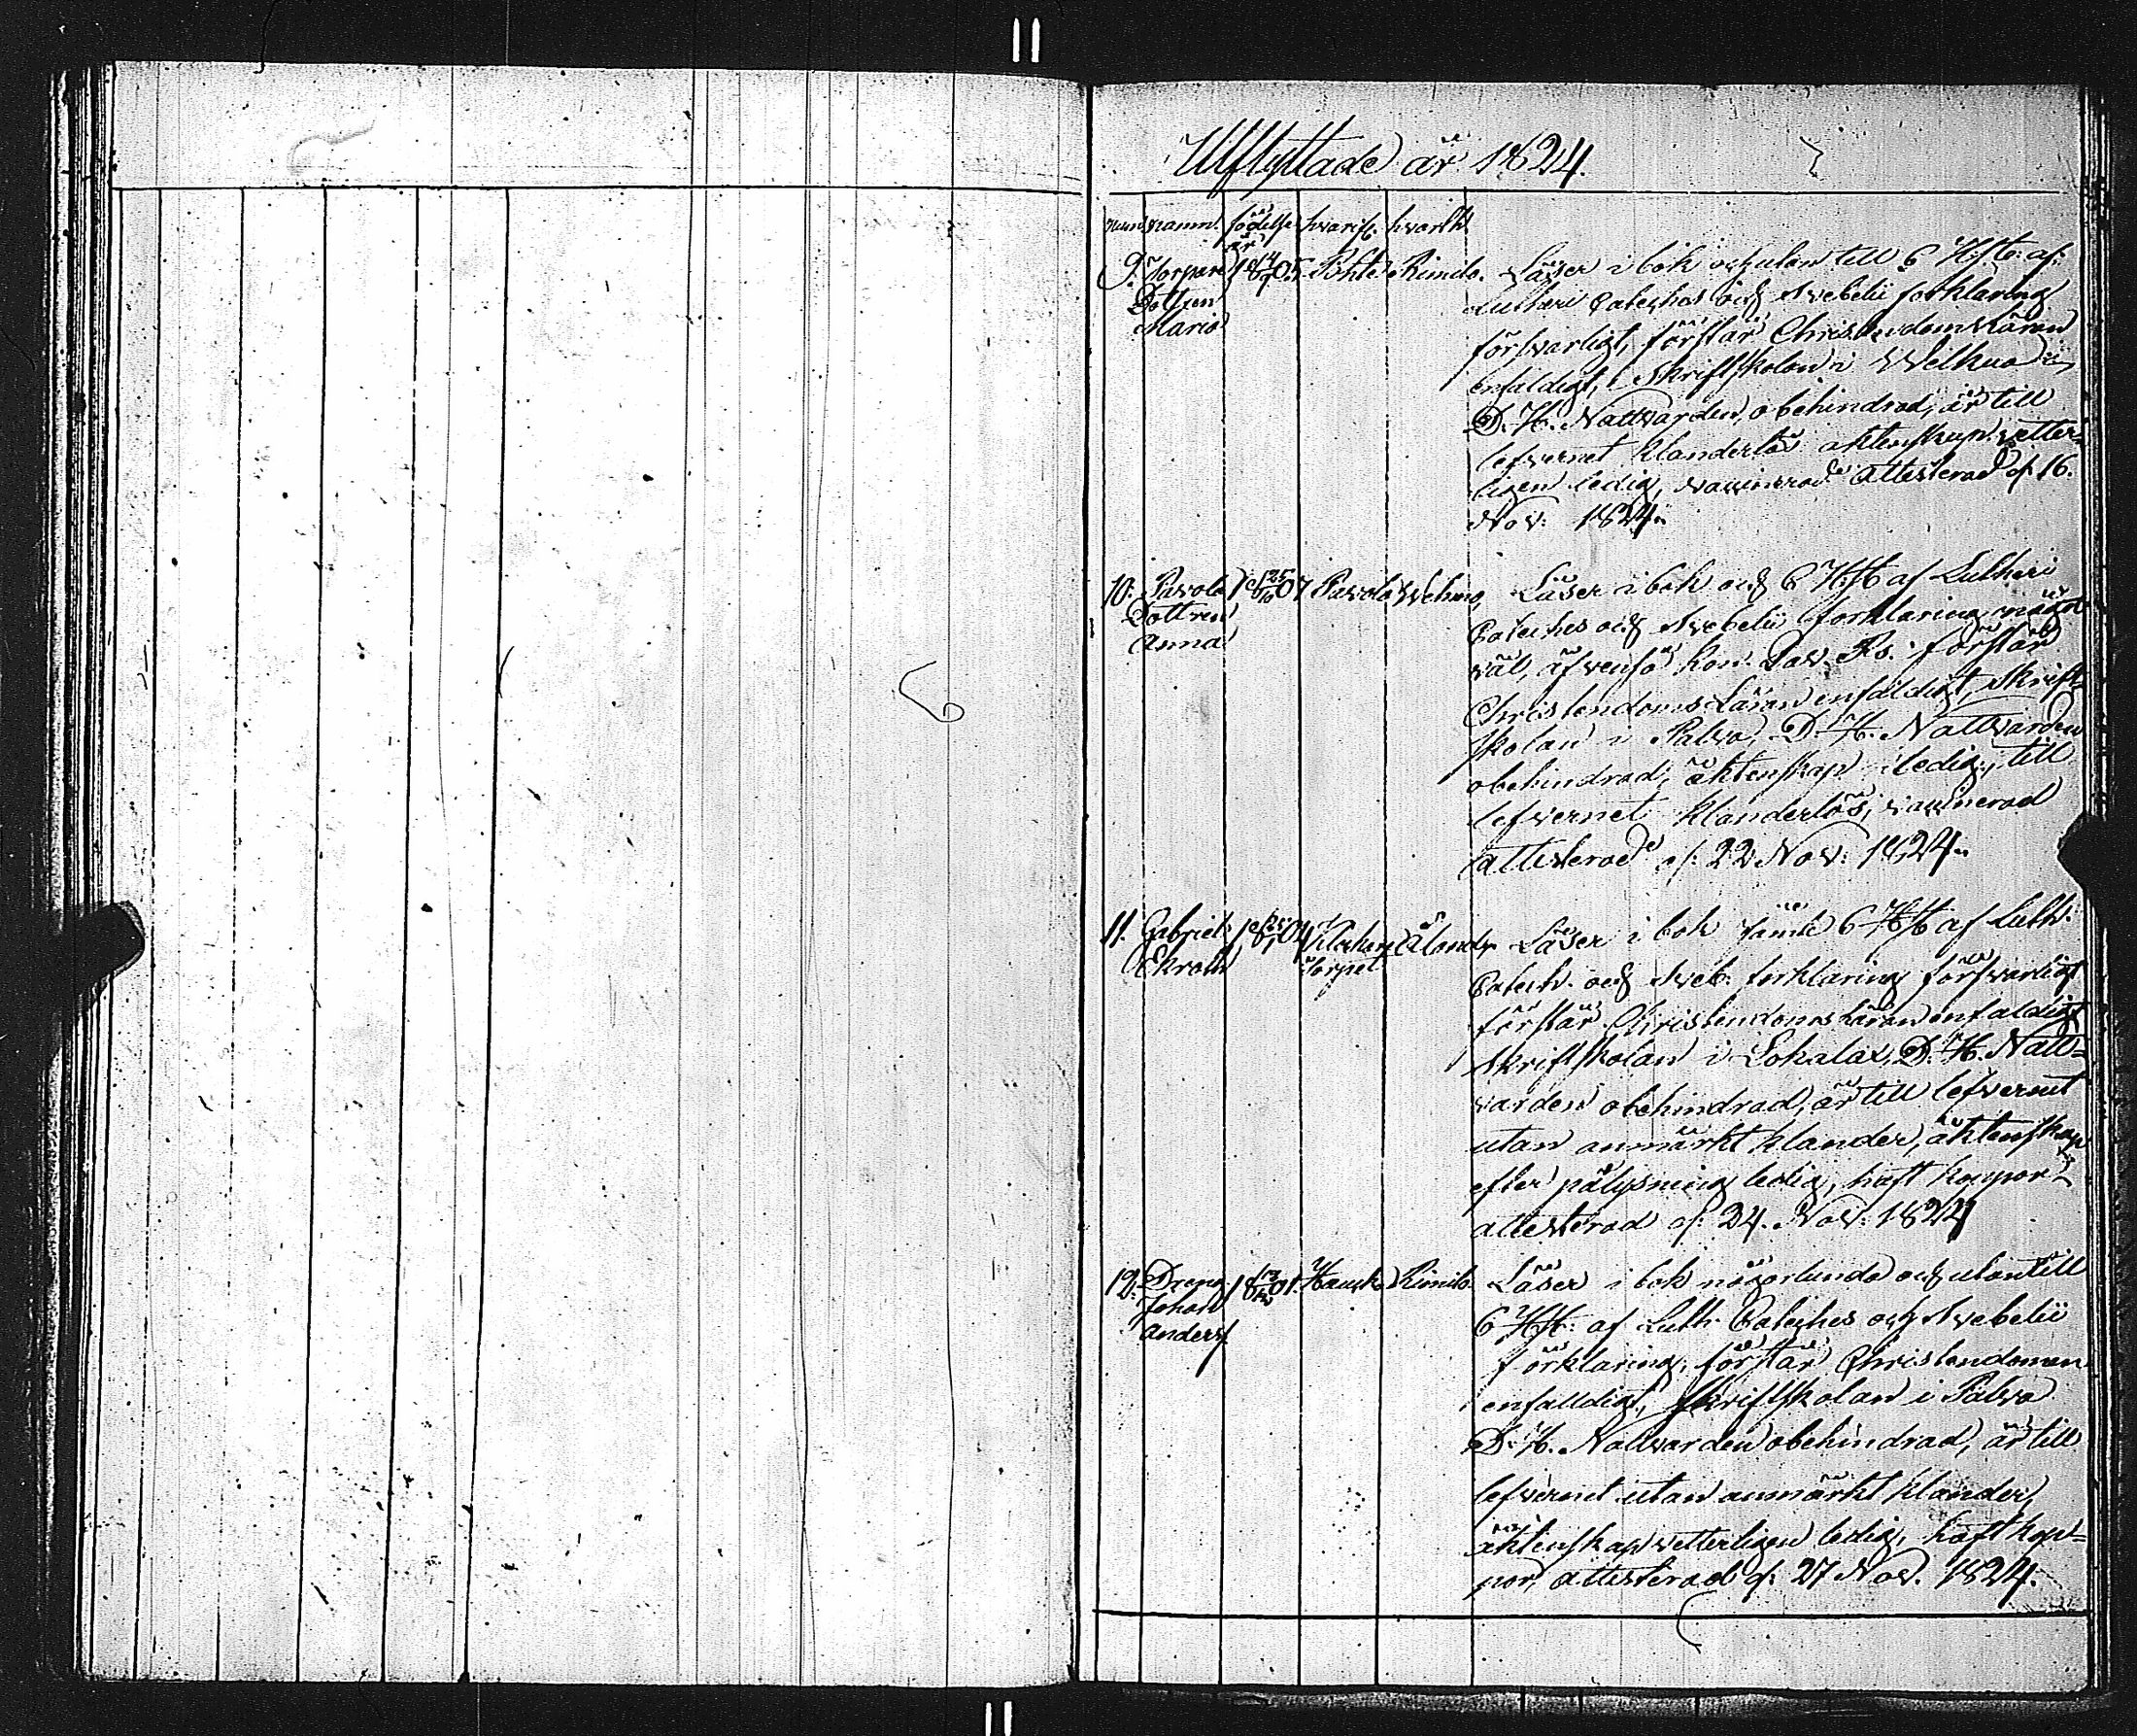 Utflyttade år 1824.
num namn. födelse år hvarifr. hvarth.
9. Torpare Dottren Maria 1805 Pohto Rimito. Läser i bok och utan till 6 Hst. af
Lutheri Cateches och Svebelii förklaring
försvarligt, förstår Christendomsläran
enfaldigt, Skriftskolan i Welkua,
D. H. Nattvarden obehindrad, är till
lefvernet klanderlös äktenskap vetter-
ligen ledig, vaccinerad Attesterad d. 16.
Nov: 1824.
10. Pavola Dottren Anna 18 25/10 07 Pavola Vehmo, Läser i bok och 6 HSt af Lutheri
Cateches och Svebelii förklaring något
väl, äfvenså Kon. Dav. Ps. förstår
Christendoms Läran enfaldigt, Skrift-
skolan i Palva, D. H. Nattvarden
obehindrad, äktenskap ledig, till
lefvernet klanderlös, vaccinerad
attesterad d. 22 Nov: 1824.
11. Gabriel Ekroth 1804 Klockars Torpet Åland, Läser i bok samt 6 HSt af Luth.
Catech. och Sveb. förklaring försvarligt
förstår Christendoms Läran enfaldigt
Skriftskolan i Lokalax, D. H. Natt-
varden obehindrad, är till lefvernet
utan anmärkt klander, äktenskap
efter pålysning ledig, haft koppor
attesterad d. 24. Nov: 1824
12. Dreng Johan Anders. 1801. Hanka Rimito. Läser i bok någorlunda och utantill
6 HSt. af Luth. Cateches och Svebelii
förklaring, förstår Christendomen
enfalldigt, Skriftskolan i Palva
D. H. Nattvarden obehindrad, är till
lefvernet utan anmärkt klander,
äktenskap vetterligen ledig, haft kop-
por, attesterad d. 27 Nov. 1824.